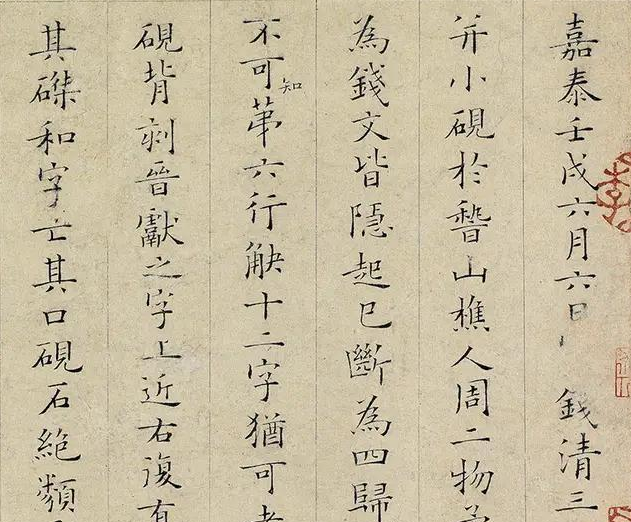 嘉泰壬戌六月六日 錢清三
并小硯於稽山樵人周二物
為錢文皆隱起已斷為四歸
不可知苐六行觖十二字猶可考
硯背刻晉獻之字上近右復有
其磔和字亡其口硯石絶類